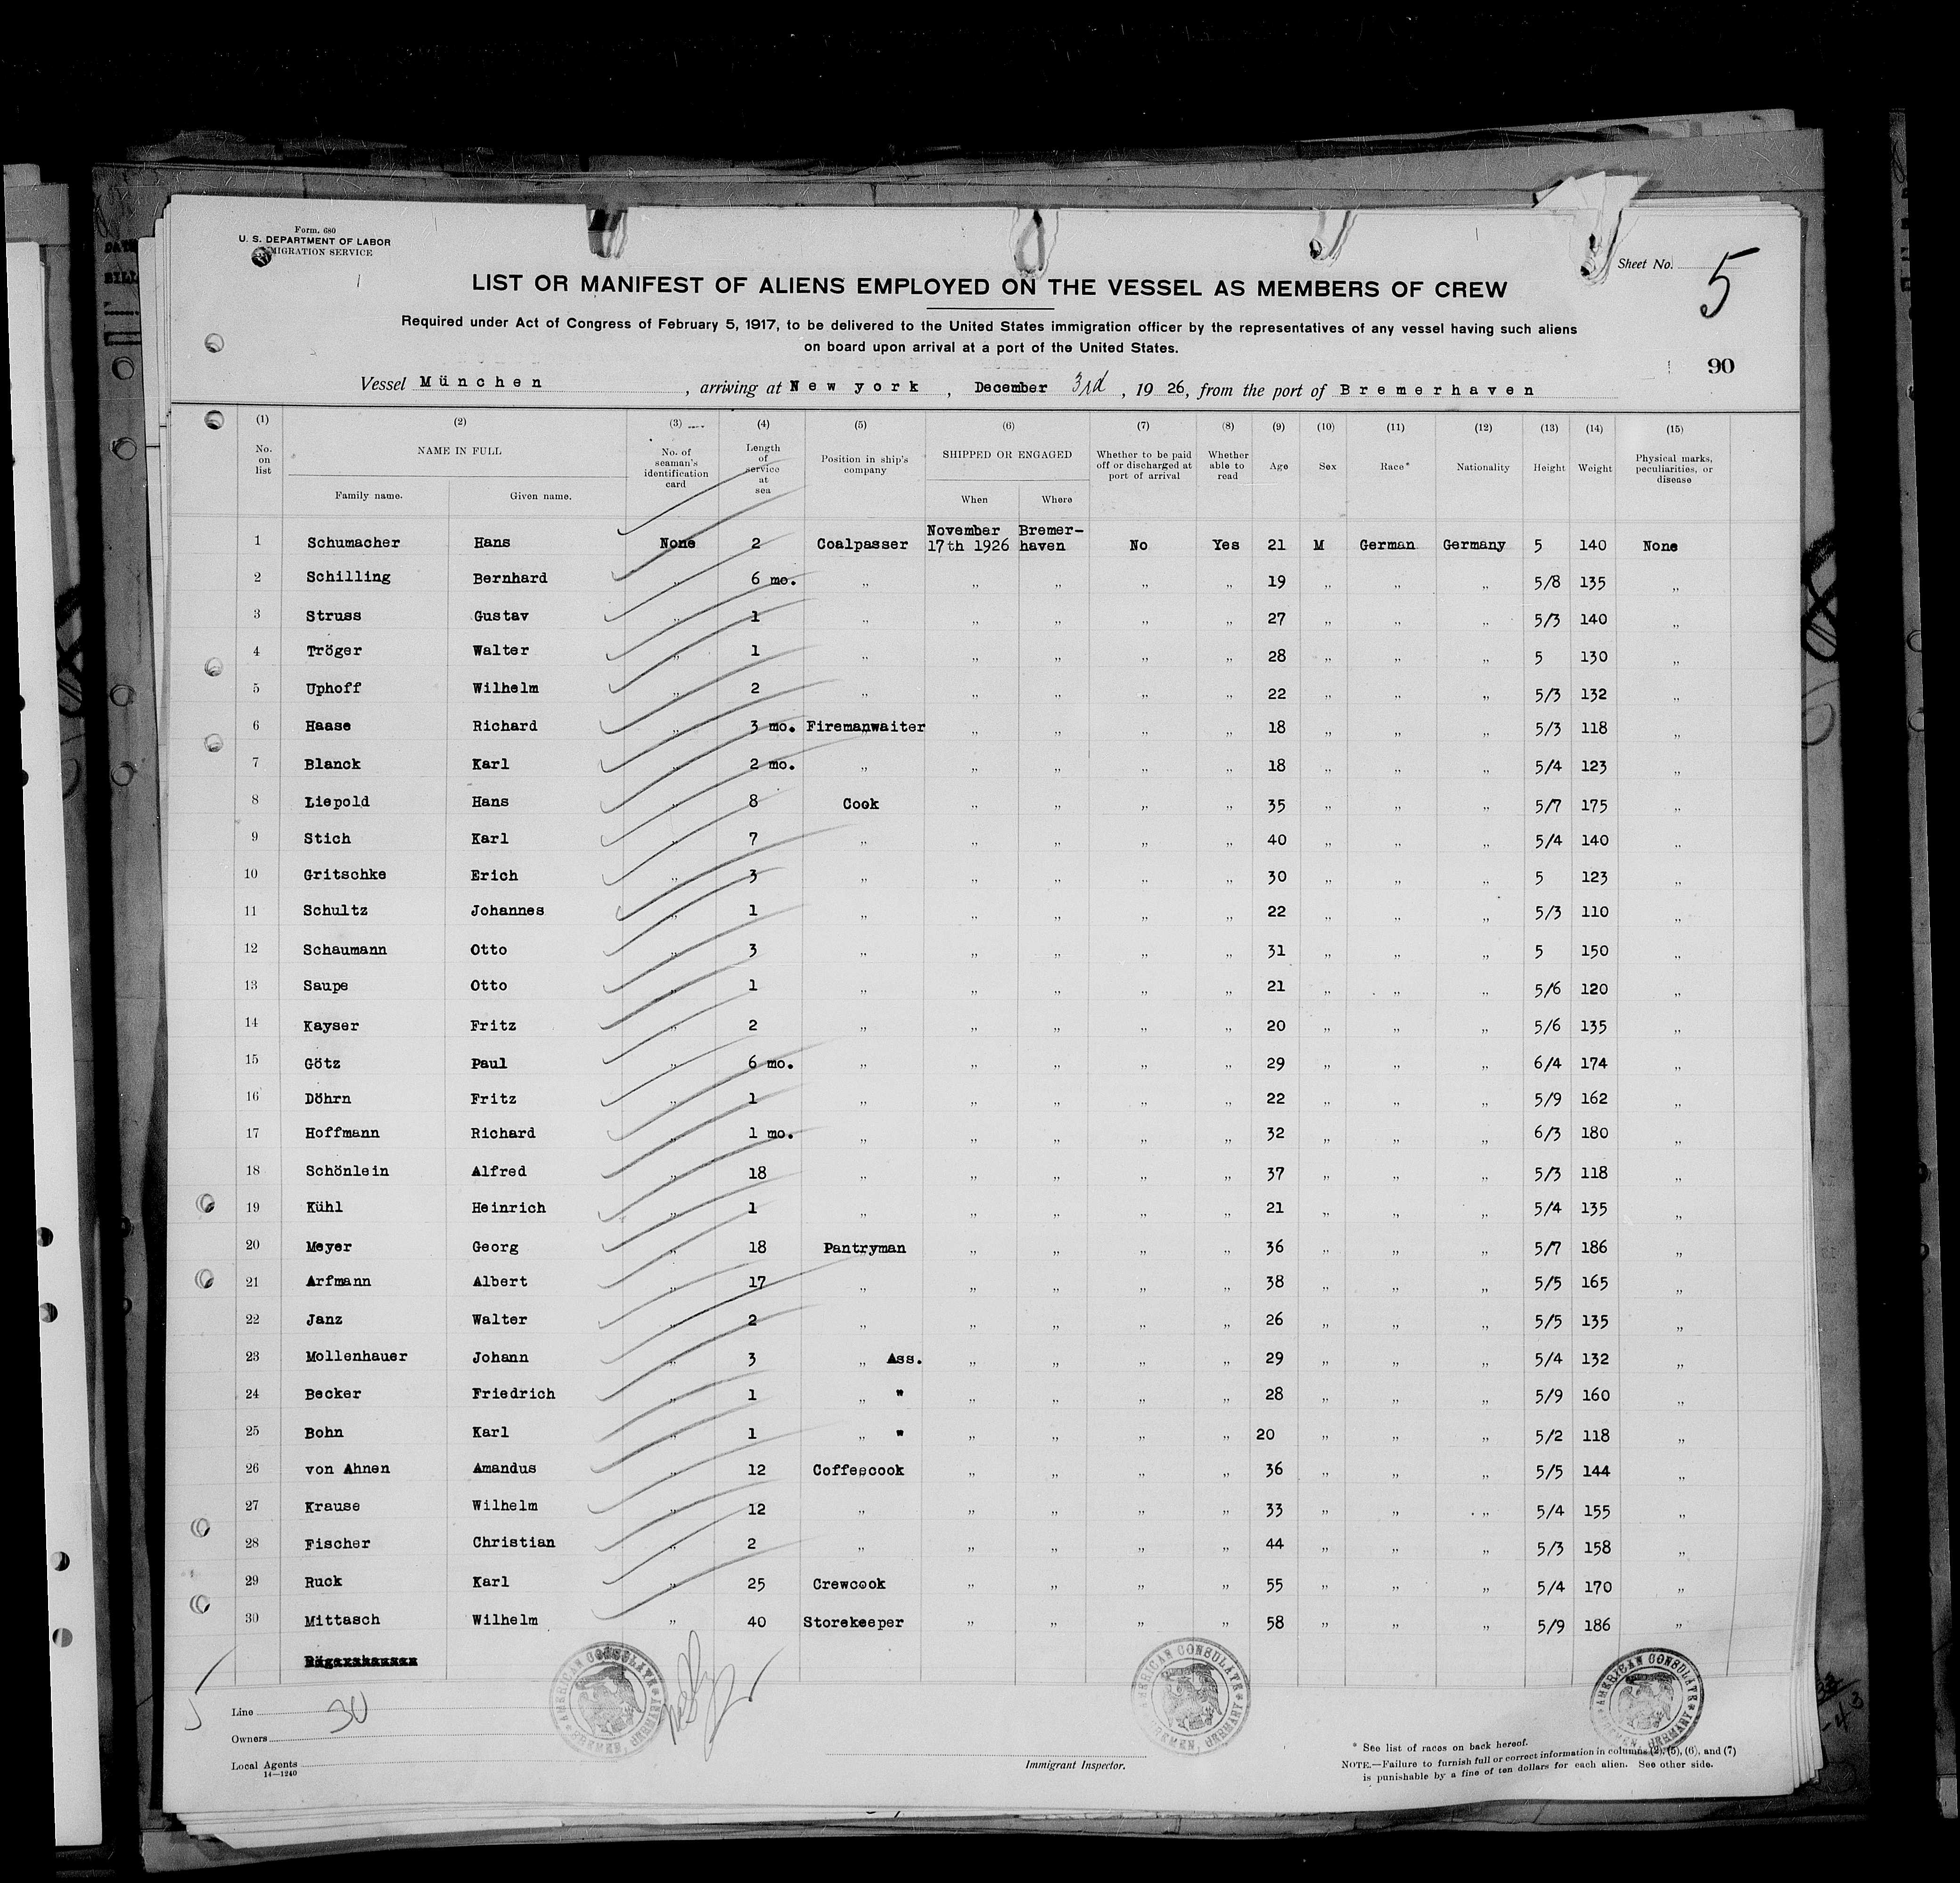 Form. 680
U. S. DEPARTMENT OF LABOR
MIGRATION SERVICE
Sheet No. 5
LIST OR MANIFEST OF ALIENS EMPLOYED ON THE VESSEL AS MEMBERS OF CREW
Required under Act of Congress of February 5, 1917, to be delivered to the United States immigration officer by the representatives of any vessel having such aliens
on board upon arrival at a port of the United States.
90
Vessel München, arriving at New york, December 3rd, 1926, from the port of Bremerhaven
(1) (2) (3) (4) (5) (6) (7) (8) (9) (10) (11) (12) (13) (14) (15)
No. on list NAME IN FULL Family name. Given name. No. of seaman's identification card Length of service at sea Position in ship's company SHIPPED OR ENGAGED When Where Whether to be paid off or discharged at port of arrival Whether able to read Age Sex Race* Nationality Height Weight Physical marks, peculiarities, or disease
1 Schumacher Hans None 2 Coalpasser November 17th 1926 Bremer-haven No Yes 21 M German Germany 5 140 None
2 Schilling Bernhard „ 6 mo. „ „ „ „ „ 19 „ „ „ 5/8 135 „
3 Struss Gustav „ 1 „ „ „ „ „ 27 „ „ „ 5/3 140 „
4 Tröger Walter „ 1 „ „ „ „ „ 28 „ „ „ 5 130 „
5 Uphoff Wilhelm „ 2 „ „ „ „ „ 22 „ „ „ 5/3 132 „
6 Haase Richard „ 3 mo. Firemanwaiter „ „ „ „ 18 „ „ „ 5/3 118 „
7 Blanck Karl „ 2 mo. „ „ „ „ „ 18 „ „ „ 5/4 123 „
8 Liepold Hans „ 8 Cook „ „ „ „ 35 „ „ „ 5/7 175 „
9 Stich Karl „ 7 „ „ „ „ „ 40 „ „ „ 5/4 140 „
10 Gritschke Erich „ 3 „ „ „ „ „ 30 „ „ „ 5 123 „
11 Schultz Johannes „ 1 „ „ „ „ „ 22 „ „ „ 5/3 110 „
12 Schaumann Otto „ 3 „ „ „ „ „ 31 „ „ „ 5 150 „
13 Saupe Otto „ 1 „ „ „ „ „ 21 „ „ „ 5/6 120 „
14 Kayser Fritz „ 2 „ „ „ „ „ 20 „ „ „ 5/6 135 „
15 Götz Paul „ 6 mo. „ „ „ „ „ 29 „ „ „ 6/4 174 „
16 Döhrn Fritz „ 1 „ „ „ „ „ 22 „ „ „ 5/9 162 „
17 Hoffmann Richard „ 1 mo. „ „ „ „ „ 32 „ „ „ 6/3 180 „
18 Schönlein Alfred „ 18 „ „ „ „ „ 37 „ „ „ 5/3 118 „
19 Kühl Heinrich „ 1 „ „ „ „ „ 21 „ „ „ 5/4 135 „
20 Meyer Georg „ 18 Pantryman „ „ „ „ 36 „ „ „ 5/7 186 „
21 Arfmann Albert „ 17 „ „ „ „ „ 38 „ „ „ 5/5 165 „
22 Janz Walter „ 2 „ „ „ „ „ 26 „ „ „ 5/5 135 „
23 Mollenhauer Johann „ 3 „ Ass. „ „ „ „ 29 „ „ „ 5/4 132 „
24 Becker Friedrich „ 1 „ " „ „ „ „ 28 „ „ „ 5/9 160 „
25 Bohn Karl „ 1 „ " „ „ „ „ 20 „ „ „ 5/2 118 „
26 von Ahnen Amandus „ 12 Coffeecook „ „ „ „ 36 „ „ „ 5/5 144 „
27 Krause Wilhelm „ 12 „ „ „ „ „ 33 „ „ „ 5/4 155 „
28 Fischer Christian „ 2 „ „ „ „ „ 44 „ „ „ 5/3 158 „
29 Ruck Karl „ 25 Crewcook „ „ „ „ 55 „ „ „ 5/4 170 „
30 Mittasch Wilhelm „ 40 Storekeeper „ „ „ „ 58 „ „ „ 5/9 186 „
AMERICAN CONSULATE BREMEN, GERMANY
AMERICAN CONSULATE BREMEN, GERMANY
AMERICAN CONSULATE BREMEN, GERMANY
Line 30
Owners
Local Agents
14—1240
Immigrant Inspector.
* See list of races on back hereof.
NOTE.—Failure to furnish full or correct information in columns (2), (5), (6), and (7)
is punishable by a fine of ten dollars for each alien. See other side.